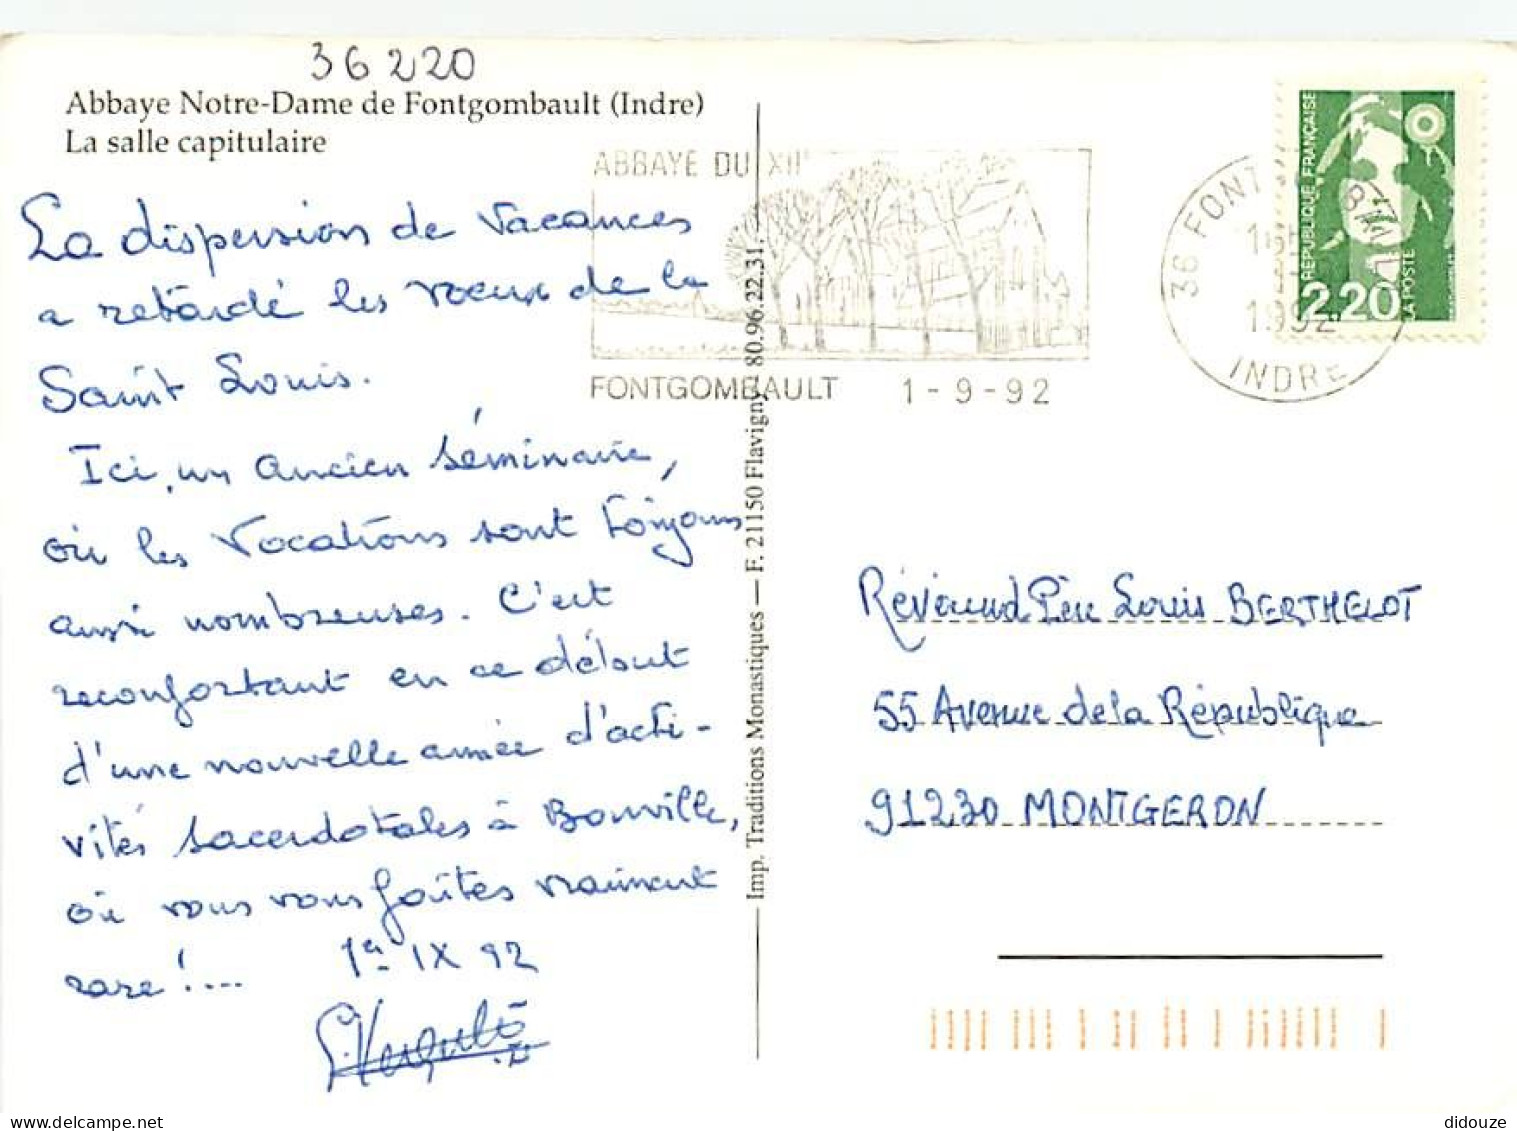 36220
Abbaye Notre-Dame de Fontgombault (Indre)
La salle capitulaire
La dispersion de Vacances
a retardé les vœux de la
Saint Louis.
Ici, un ancien séminaire,
où les Vocations sont toujours
aussi nombreuses. C'est
reconfortant en ce début
d'une nouvelle année d'acti-
vités sacerdotales à Bonville,
où vous vous faites vraiment
rare !....
1er IX 92
ABBAYE DU XIIe
FONTGOMBAULT 1-9-92
36 FONT
1992
INDRE
RÉPUBLIQUE FRANÇAISE
2,20
LA POSTE
Imp. Traditions Monastiques — F. 21150 Flavigny — 80.96.22.31.
Révérend Père Louis BERTHELOT
55 Avenue de la République
91230 MONTGERON
didouze